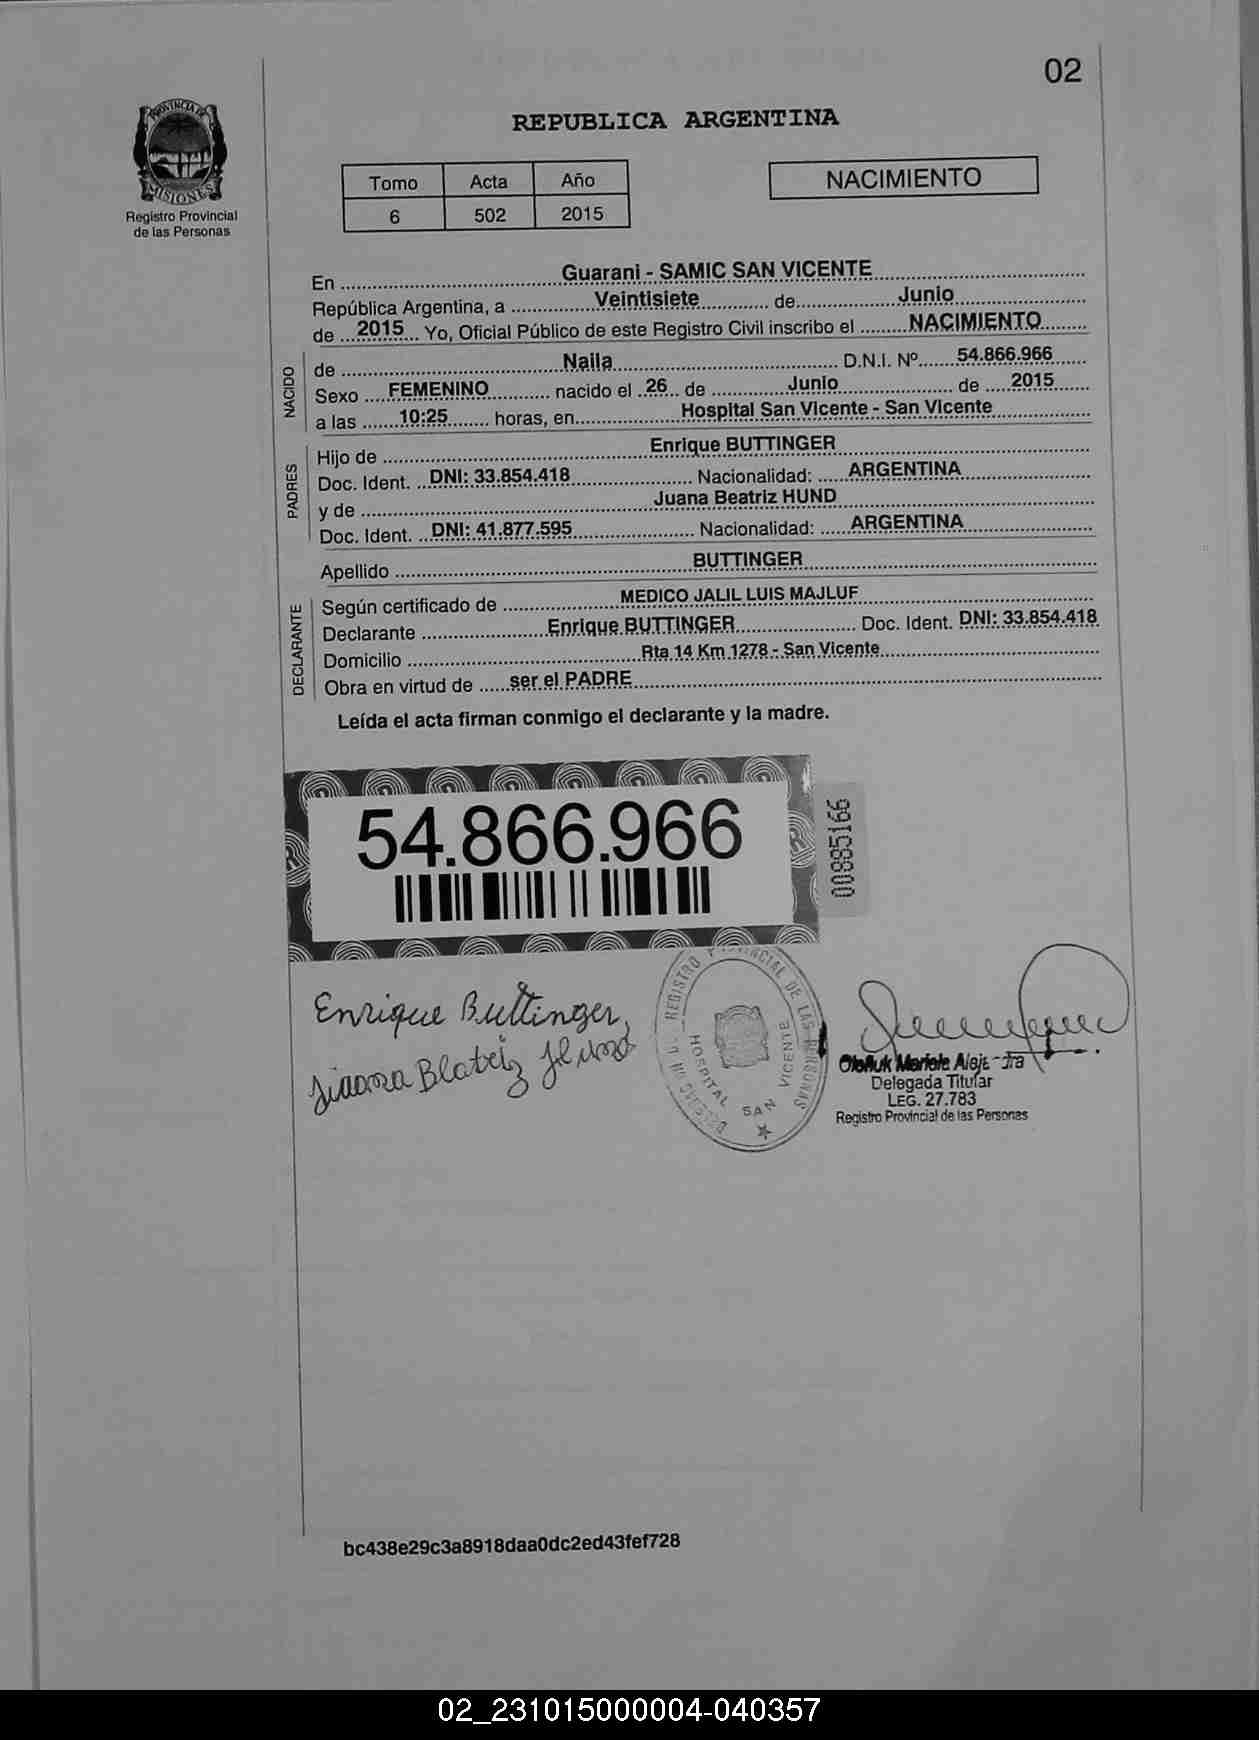 02
PROVINCIA DE
MISIONES
Registro Provincial
de las Personas
REPUBLICA ARGENTINA
Tomo Acta Año
6 502 2015
NACIMIENTO
En Guarani - SAMIC SAN VICENTE
República Argentina, a Veintisiete de Junio
de 2015 Yo, Oficial Público de este Registro Civil inscribo el NACIMIENTO
NACIDO
de Naila D.N.I. Nº 54.866.966
Sexo FEMENINO nacido el 26 de Junio de 2015
a las 10:25 horas, en Hospital San Vicente - San Vicente
PADRES
Hijo de Enrique BUTTINGER
Doc. Ident. DNI: 33.854.418 Nacionalidad: ARGENTINA
y de Juana Beatriz HUND
Doc. Ident. DNI: 41.877.595 Nacionalidad: ARGENTINA
Apellido BUTTINGER
DECLARANTE
Según certificado de MEDICO JALIL LUIS MAJLUF
Declarante Enrique BUTTINGER Doc. Ident. DNI: 33.854.418
Domicilio Rta 14 Km 1278 - San Vicente
Obra en virtud de ser el PADRE
Leída el acta firman conmigo el declarante y la madre.
54.866.966
00885166
Enrique Buttinger
REGISTRO PROVINCIAL DE LAS PERSONAS
HOSPITAL SAN VICENTE
Delegada Titular
LEG. 27.783
Registro Provincial de las Personas
bc438e29c3a8918daa0dc2ed43fef728
02_231015000004-040357